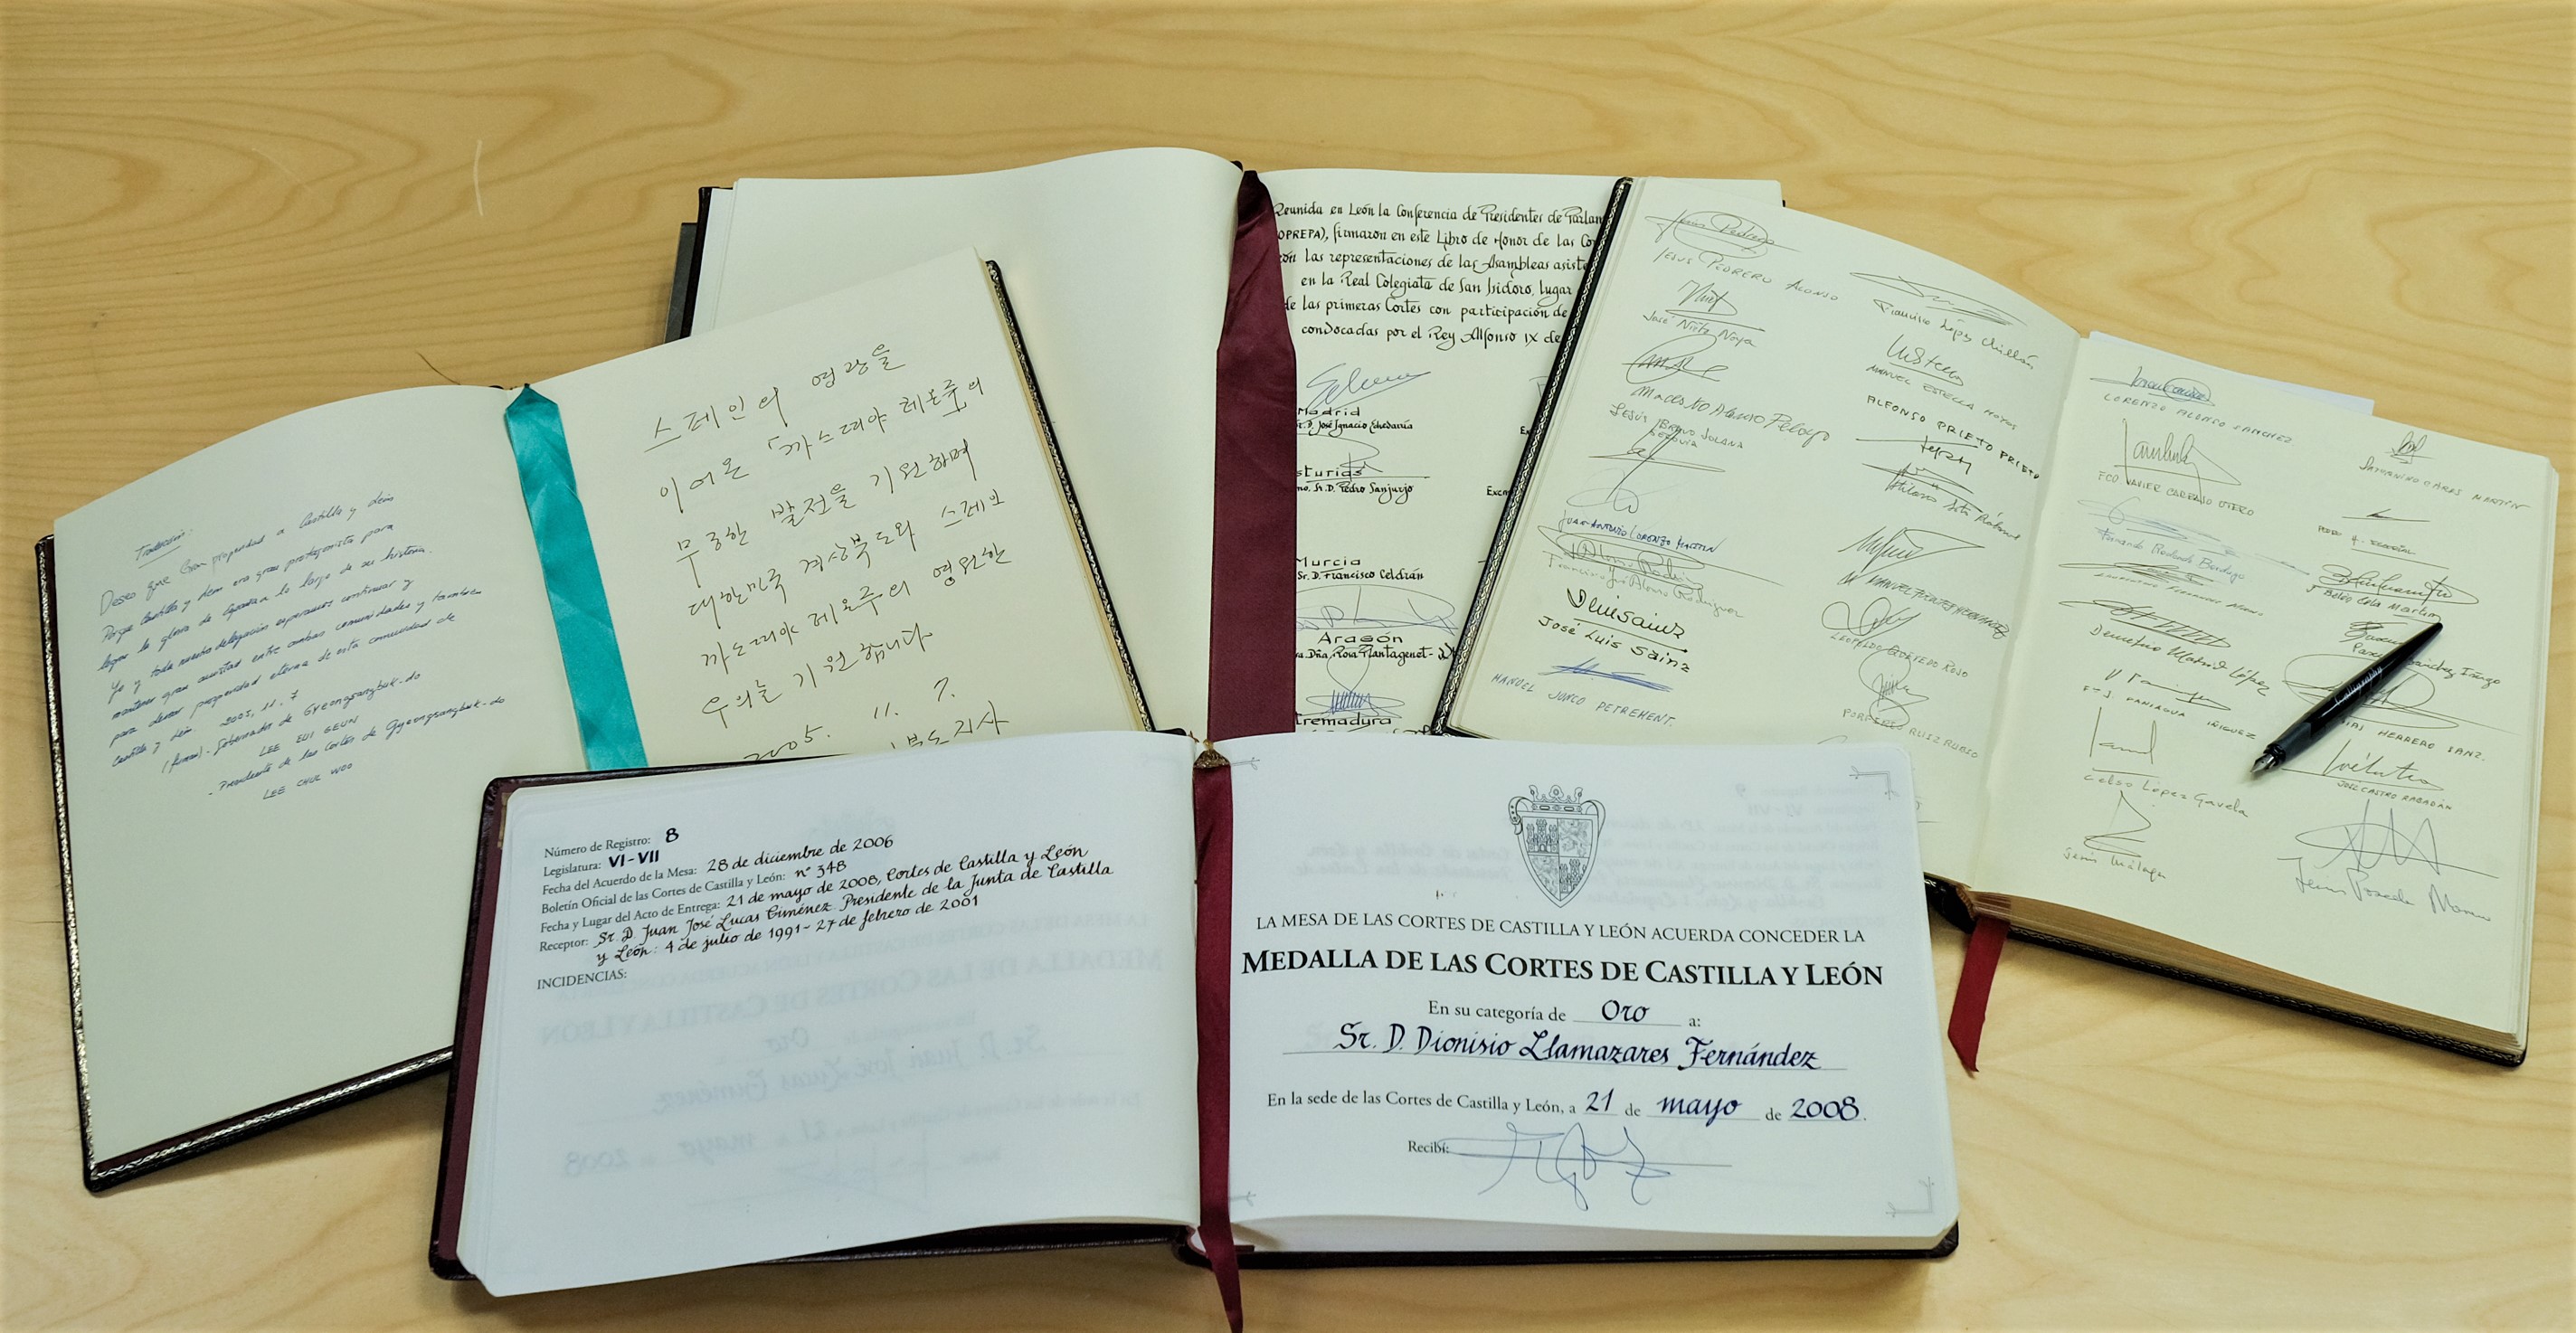 Traducción:
Deseo que gran prosperidad a Castilla y León
Porque Castilla y León era gran protagonista para
lograr la gloria de España a lo largo de su historia.
Yo y toda nuestra delegación esperamos continuar y
mantener gran amistad entre ambas comunidades y también
para desear prosperidad eterna de esta comunidad de
Castilla y León. 2005, 11, 7
(firmas).- Gobernador de Gyeongsangbuk-do
LEE EUI GEUN
- Presidente de las Cortes de Gyeongsangbuk-do
LEE CHUL WOO
스페인의 영광을
이어온 「까스띠야 레온주의
무궁한 발전을 기원하며
대한민국 경상북도와 스페인
까스띠야 레온주의 영원한
우의를 기원합니다
2005. 11. 7.
북도지사
Reunida en León la Conferencia de Presidentes de Parlam
OPREPA), firmaron en este Libro de Honor de las Co
ón las representaciones de las Asambleas asiste
en la Real Colegiata de San Isidoro, lugar
de las primeras Cortes con participación de
convocadas por el Rey Alfonso IX de
Madrid
Sr. D. José Ignacio Echeverría
sturias
mo. Sr. D. Pedro Sanjurjo
Murcia
Sr. D. Francisco Celdrán
Aragón
a. Dña. Rosa Plantagenet-
tremadura
JESUS PEDRERO ALONSO
José Nieto Noya
MAESTRO ALONSO Pelayo
JESÚS BRAVO SOLANA
SEGOVIA
JUAN ANTONIO LORENZO MARTIN
Francisco José Alonso Rodríguez
JOSÉ LUIS SAINZ
MANUEL JUNCO PETREMENT.
Francisco López Chillón
MANUEL ESTELLA HOYOS
ALFONSO PRIETO PRIETO
M. MANUEL FUENTES HERNANDEZ
LEOPOLDO QUEVEDO ROJO
PORFIRIO RUIZ RUBIO
LORENZO ALONSO SANCHEZ
FCO JAVIER CARRASCO OTERO
Fernando Redondo Berdugo
Demetrio Madrid López
F-J. PANIAGUA IÑIGUEZ
Celso López Gavela
Jesús Málaga
SATURNINO ARES MARTÍN
HERRERO SANZ.
JOSE CASTRO RABADÁN
Jesús Posada Moreno
Número de Registro: 8
Legislatura: VI-VII
Fecha del Acuerdo de la Mesa: 28 de diciembre de 2006
Boletín Oficial de las Cortes de Castilla y León: nº 348
Fecha y Lugar del Acto de Entrega: 21 de mayo de 2008, Cortes de Castilla y León
Receptor: Sr. D. Juan José Lucas Giménez. Presidente de la Junta de Castilla
y León: 4 de julio de 1991 - 27 de febrero de 2001
INCIDENCIAS:
LA MESA DE LAS CORTES DE CASTILLA Y LEÓN ACUERDA CONCEDER LA
MEDALLA DE LAS CORTES DE CASTILLA Y LEÓN
En su categoría de Oro a:
Sr. D. Dionisio Llamazares Fernández
En la sede de las Cortes de Castilla y León, a 21 de mayo de 2008.
Recibí: